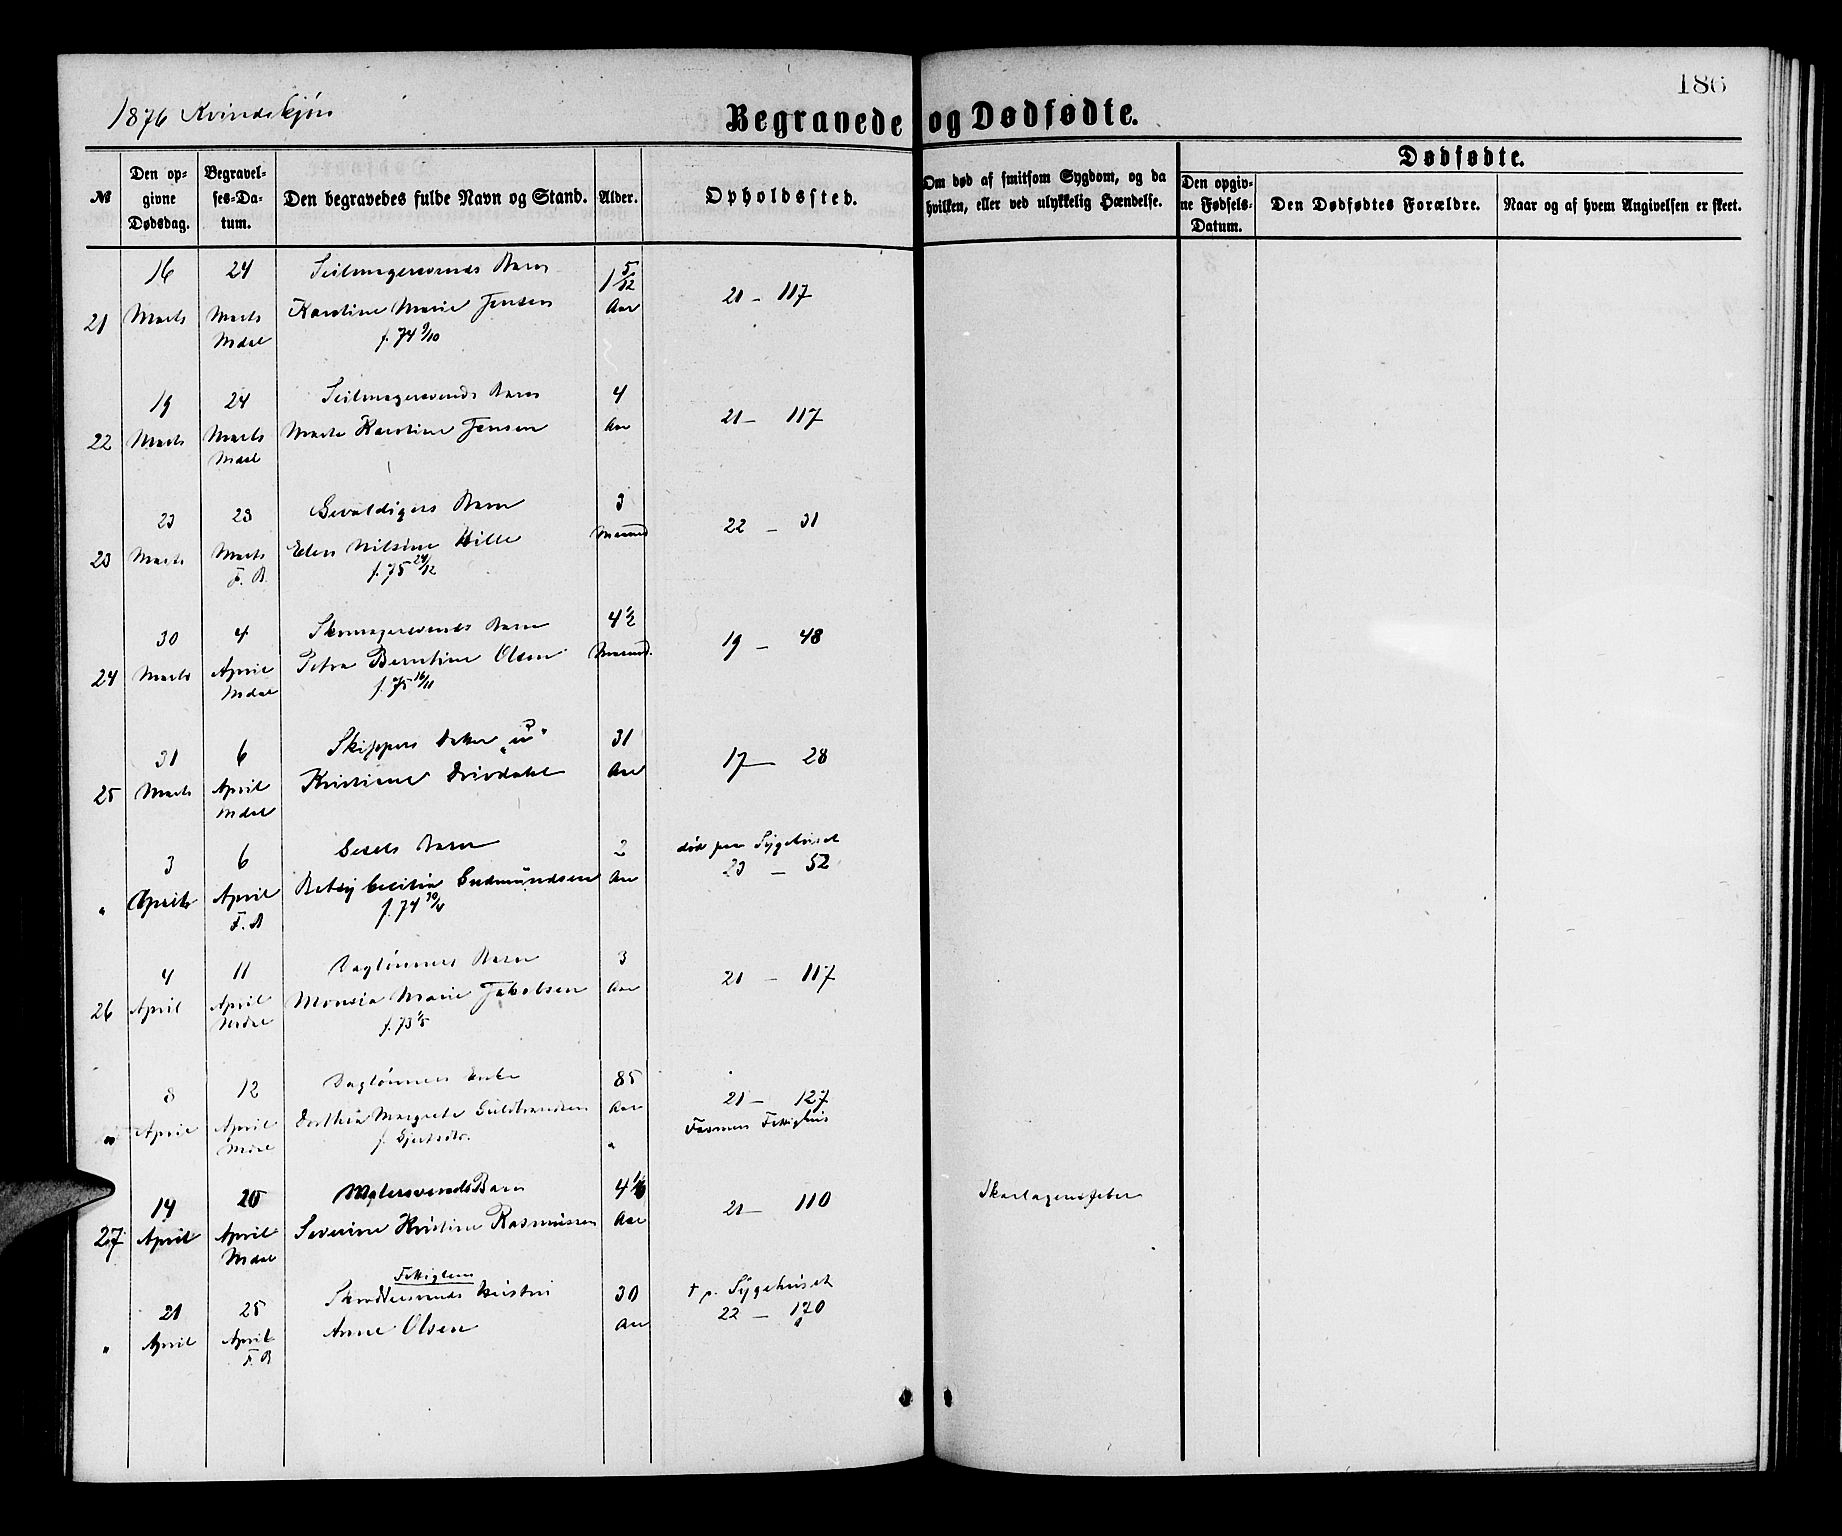 186
1876 Kvindekjøn
Begravede og Dødfødte.
№
Den opgivne Dødsdag.
Begravelses-Datum.
Den begravedes fulde Navn og Stand.
Alder.
Opholdssted.
Om død af smitsom Sygdom, og da hvilken, eller ved ulykkelig Hændelse.
Dødfødte.
Den opgivne Fødsels-Datum.
Den Dødfødtes Forældre.
Naar og af hvem Angivelsen er skeet.
16 24 Seilmagersvends Barn 1 5/12
21 Marts Marts Karoline Marie Jensen Aar 21 – 117
Mdal f. 74 9/10
19 24 Seilmagersvends Barn 4
22 Marts Marts Karoline Jensen Aar 21 – 117
Mdal
23 28 Gevaldigers Barn 3
23 Marts Marts Elen Nilsine Hille Maaned 22 – 31
F. B. f. 75 24/12
30 4 Skomagersvends Barn 4 1/2
24 Marts April Petra Berntine Olsen Maaned. 19 – 48
Mdal f. 75 16/11
31 6 Skippers Datter „u" 31
25 Marts April Kristiane Drivdahl Aar 17 – 28
Mdal
3 6 Barn 2 død paa Sygehuset
" April April Betsy Cecilia Gudmundsen Aar 23 – 52
F. B f. 74 30/4
4 11 Daglønners Barn 3
26 April April Monsia Marie Jakobsen Aar 21 – 117
Mdal f. 73 1/5
8 12 Dagløнners Enke 85
" April April Dorthea Margrete Guldbrandsen Aar 21 – 127
Mdal f. "
Fattighus
14 20 Malersvends Barn 4 1/6 Skarlagensfeber
27 April April Severine Kristine Rasmussen Aar 21 – 110
Mdal
Fattiglem
21 25 Skræddersvends Hustru 30 † p. Sygehuset
" April April Anne Olsen Aar 22 – 170
F. B